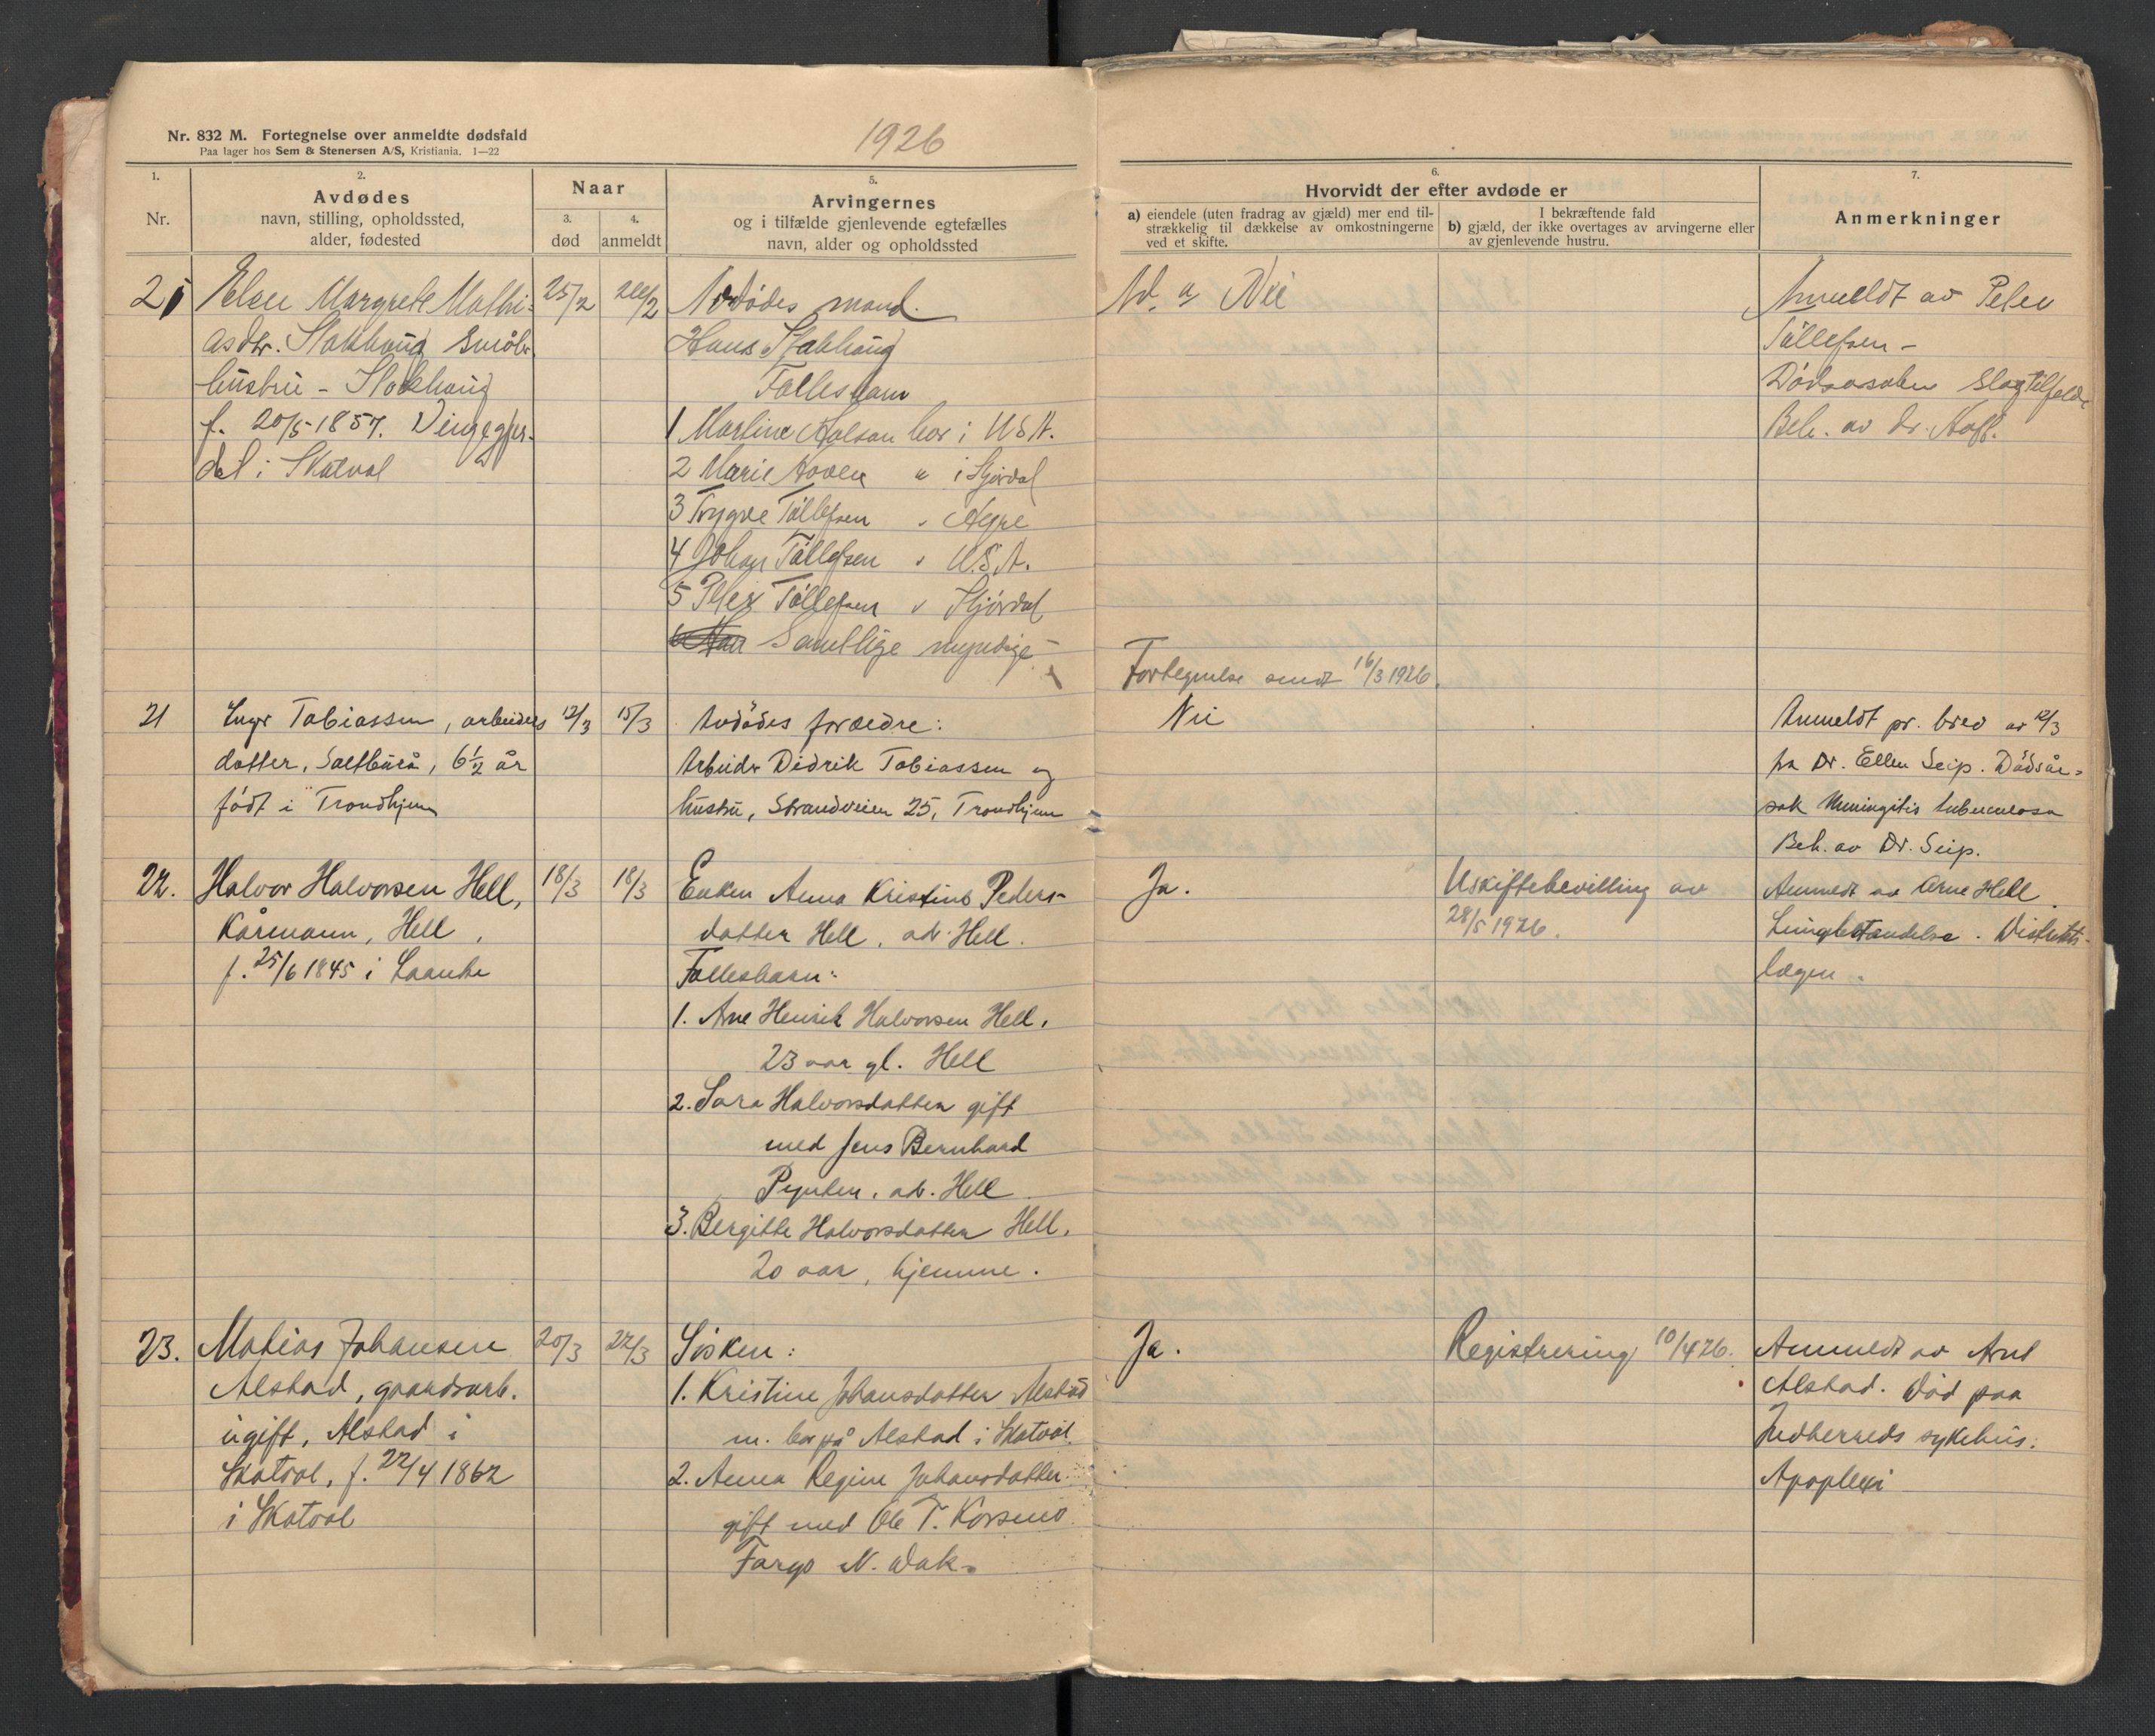 Nr. 832 M. Fortegnelse over anmeldte dødsfald
Paa lager hos Sem & Stenersen A/S, Kristiania. 1—22
1926
1.
Nr.
2.
Avdødes
navn, stilling, opholdssted,
alder, fødested
Naar
3.
død
4.
anmeldt
5.
Arvingernes
og i tilfælde gjenlevende egtefælles
navn, alder og opholdssted
6.
Hvorvidt der efter avdøde er
a) eiendele (uten fradrag av gjæld) mer end til-
strækkelig til dækkelse av omkostningerne
ved et skifte.
I bekræftende fald
b) gjæld, der ikke overtages av arvingerne eller
av gjenlevende hustru.
7.
Anmerkninger
Margrete Mathi-
asdtr. Stokhaug småbr.
hustru - Stokhaug
f. 20/5-1857.
dal i Skatval
25/2
Avdødes mand.
Hans Stokhaug
Fællesbarn
1 Marline bor i USA.
2 Marie " i Stjørdal
3 Trygve Tøllefsen
4 Johan Tøllefsen " U.S.A.
5 Peter Tøllefsen " Stjørdal
Samtlige myndige
Nei
Fortegnelse sendt 16/3 1926.
Anmeldt av Peter
Tøllefsen -
Dødsorsaken slagtilfelde
Beh. av dr.
21
Inger Tobiassen, arbeiders
datter, Saltbuen, 6½ år
født i Trondhjem
12/3
15/3
Avdødes foreldre:
Arbeider Didrik Tobiassen og
hustru, Strandveien 25, Trondhjem
Nei
Anmeldt pr. brev av 12/3
fra Dr. Ellen Seip. Dødsår-
sak Meningitis tuberculosa
Beh. av Dr. Seip.
22.
Halvor Halvorsen Hell,
Kårmann, Hell,
f. 25/6 1845 i Laanke
18/3
18/3
Enken Anna Kristine Peders-
datter Hell, adr. Hell.
Fællesbarn:
1. Arne Henrik Halvorsen Hell,
23 aar gl. Hell
2. Sara Halvorsdatter gift
med Jens Bernhard
Pynten, adr. Hell
3. Bergitte Halvorsdatter Hell,
20 aar, hjemme.
Ja.
Uskiftebevilling av
28/5 1926.
Anmeldt av Arne Hell.
Lungebetændelse. Distrikts-
lægen.
23.
Matias Johansen
Alstad, gaardsarb.
ugift, Alstad i
Skatval, f. 22/4 1862
i Skatval
20/3
22/3
Søsken:
1. Kristine Johansdatter Alstad
m. bor på Alstad i Skatval.
2. Anna Regine Johansdatter
gift med Ole T. Korsmo
Fargo N. Dak.
Ja.
Registrering 10/4 26.
Anmeldt av Arnt
Alstad. Død paa
Indherreds sykehus.
Apoplexi